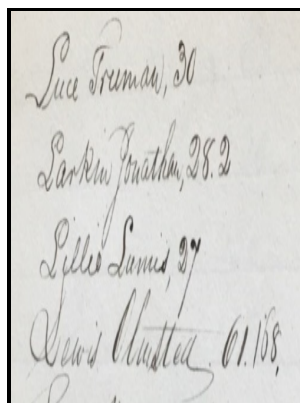 Luce Freeman, 30
Larkin Jonathan, 28.2
Lillie 27
Lewis Olmsted. 61.168,